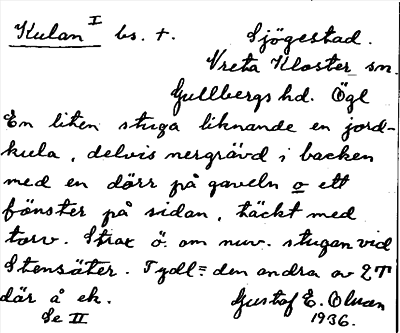 Kulan I bs. +. Sjögestad.
Vreta Kloster sn.
Gullbergs hd. Ögl
En liten stuga liknande en jord-
kula, delvis nergrävd i backen
med en dörr på gaveln o ett
fönster på sidan, täckt med
torv. Strax ö. om nuv. stugan vid
Stensäter. Tydl = den andra av 2 T
där å ek. Gustaf E. Olsson
Se II 1936.